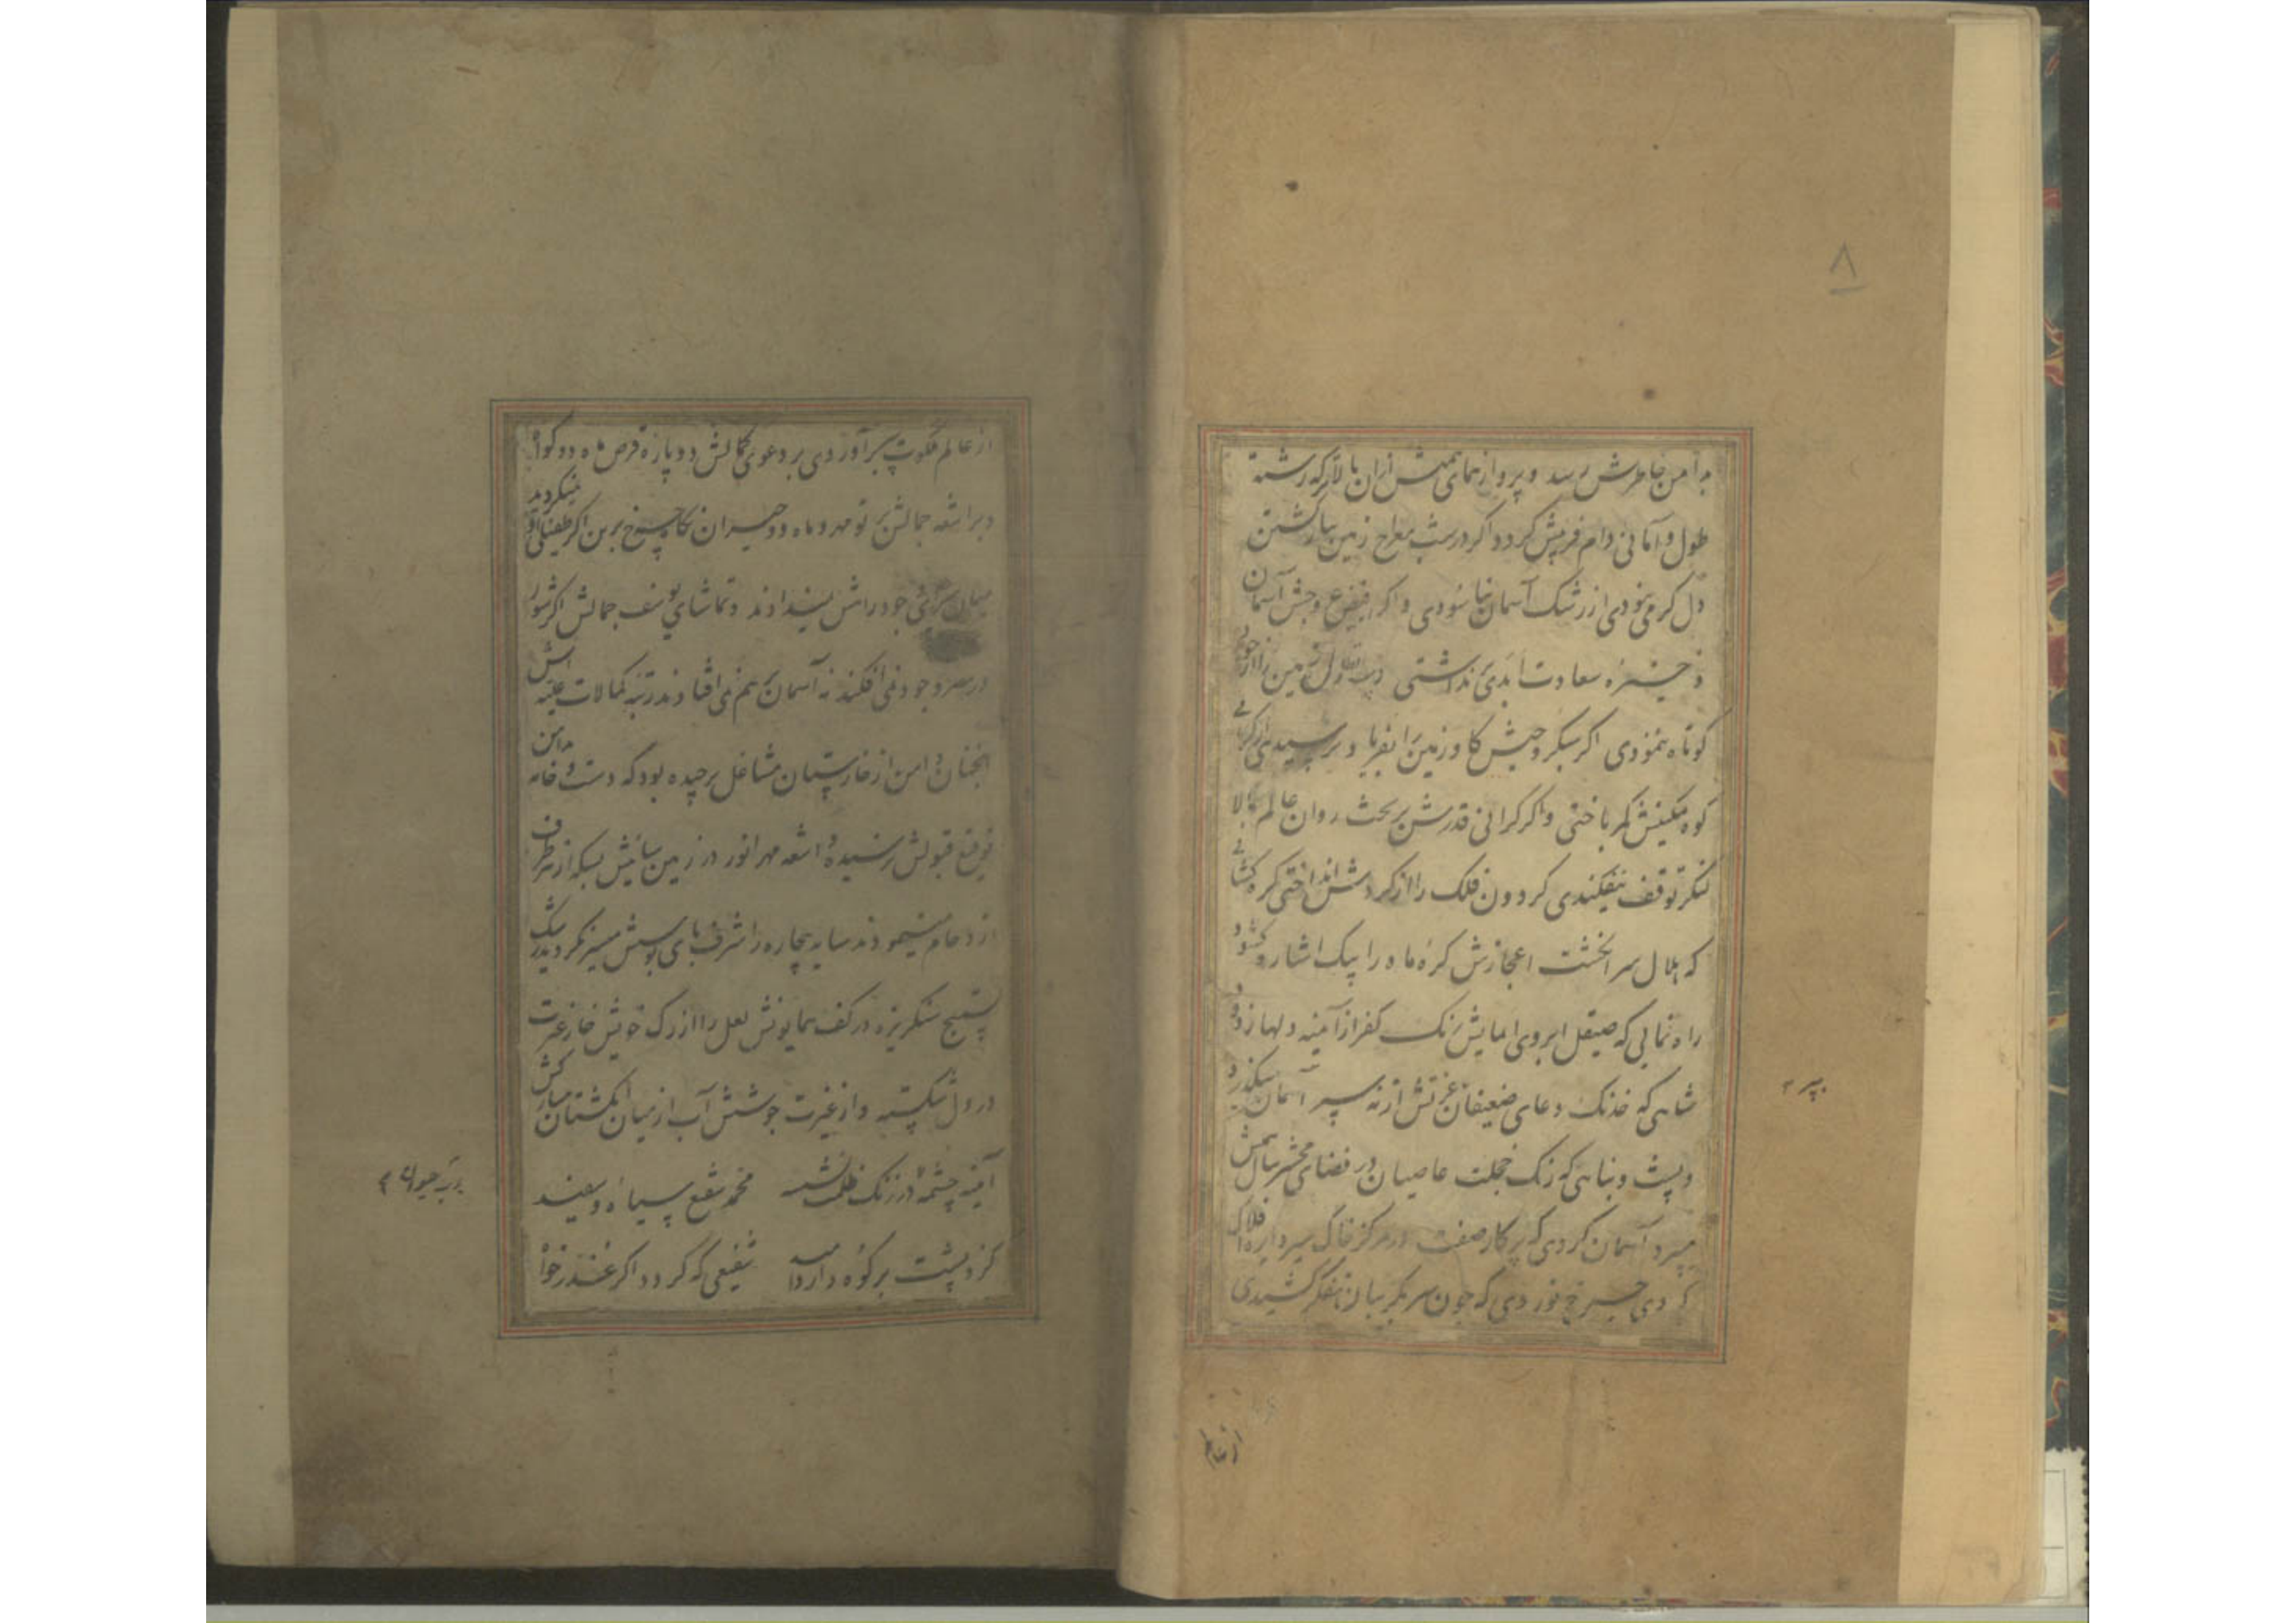 ۸
بدامن خاطرش رسد و پرواز همای همتش ازان بالاتر که رشته
طول و آمانی دام فریبش کردد اکر در شب معراج زمین بباز کشتن
دل کرم نبودی از رشک آسمان نیاسودی و اکر بفیض عروجش آسمان
ذخیره سعادت ابدی نداشتی دست تطاول زمین را از خود
کوتاه ننمودی اکر سبکروحیش کاو زمین را بفریاد نرسیدی از کرانی
کوه تمکینش کمر باختی و اکر کرانی قدرش بر تخت روان عالم بالا
لنکر توقف نیفکندی کردون فلک را از کردش انداختی کره کشائی
که هلال سر انکشت اعجازش کره ماه را بیک اشاره کشود و
راه نمائی که صیقل ابروی ایمایش زنک کفر از آینه دلها زدود
شاهی که خدنک دعای ضعیفان عزتش از نه سپر آسمان میکذرد
سپر
و پشت و پناهی که زنک خجلت عاصیان در فضای محشر ببال همتش
میپرد آسمان کردی که پرکار صفت در مرکز خاک سیر دایره افلاک
کردی چرخ نوردی که چون سر بکریبان تفکر کشیدی
از عالم
از عالم ملکوت سر برآوردی بر دعوی کمالش دو پاره قرص ماه دو کواه
و بر اشعه جمالش پرتو مهر و ماه دو حیران نکاه چرخ برین اکر طفیلی او نمیکردید
میان سرای وجود راهش نمیدادند و تماشای یوسف جمالش اکر شور
در مصر وجود نمی افکند نه آسمان بر هم نمی افتادند رتبه کمالات علیه اش
انچنان دامن از خارستان مشاغل برچیده بود که دست خامه و دامن
توقع قبولش نرسیده و اشعه مهر انور در زمین سایه اش بسکه از هر طرف
ازدحام مینمودند سایه بیچاره را شرف پای بوسش میسر نکردید رشک
تسبیح سنکریزه در کف همایونش لعل را از رک خویش خار غیرت
در دل شکسته و از غیرت جوشش آب از میان انکشتان مبارکش
آینه چشمه در زنک ظلمت نشسته محمد شفیع سیاه و سفید
کزو پشت بر کوه دارد امید شفیعی که کردد اکر عذر خواه